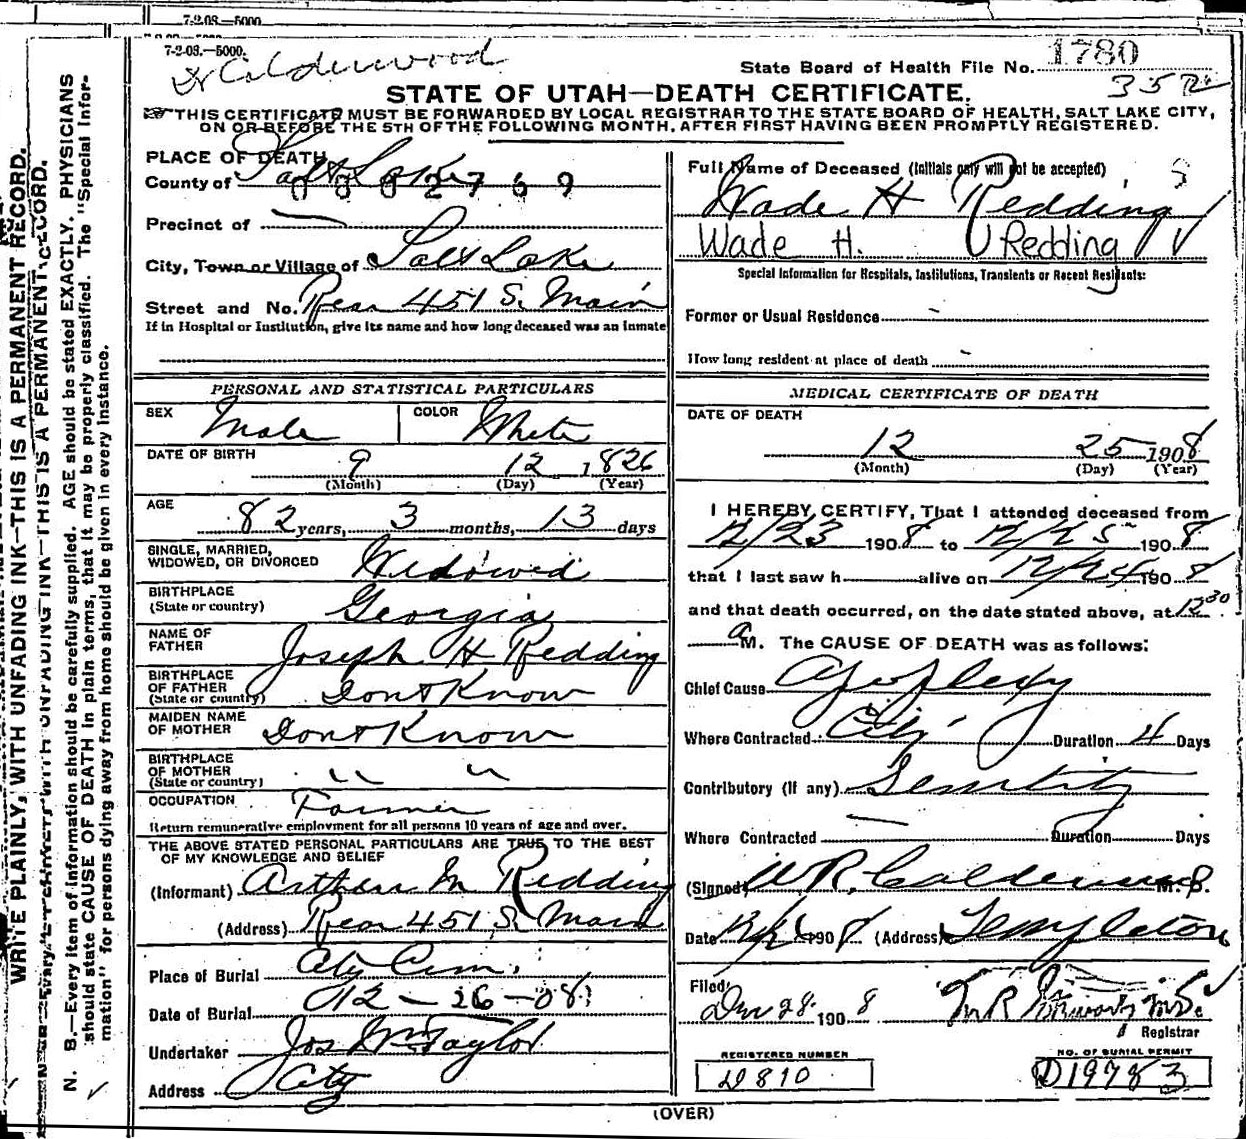 7-2-08.—5000.
7-2-08.—5000.
Dr Calderwood
State Board of Health File No. 1780
352
STATE OF UTAH—DEATH CERTIFICATE.
THIS CERTIFICATE MUST BE FORWARDED BY LOCAL REGISTRAR TO THE STATE BOARD OF HEALTH, SALT LAKE CITY,
ON OR BEFORE THE 5TH OF THE FOLLOWING MONTH, AFTER FIRST HAVING BEEN PROMPTLY REGISTERED.
PLACE OF DEATH
County of Salt Lake
Precinct of —
City, Town or Village of Salt Lake
Street and No. Rear 451 S. Main
If in Hospital or Institution, give its name and how long deceased was an inmate
Full Name of Deceased (Initials only will not be accepted)
Wade H Redding
Wade H. Redding
Special Information for Hospitals, Institutions, Transients or Recent Residents:
Former or Usual Residence
How long resident at place of death
PERSONAL AND STATISTICAL PARTICULARS
SEX Male COLOR White
DATE OF BIRTH 9 12 1826
(Month) (Day) (Year)
AGE 82 years, 3 months, 13 days
SINGLE, MARRIED,
WIDOWED, OR DIVORCED Widowed
BIRTHPLACE
(State or country) Georgia
NAME OF
FATHER Joseph H Redding
BIRTHPLACE
OF FATHER
(State or country) Dont Know
MAIDEN NAME
OF MOTHER Dont Know
BIRTHPLACE
OF MOTHER
(State or country) " "
OCCUPATION Farmer
Return remunerative employment for all persons 10 years of age and over.
THE ABOVE STATED PERSONAL PARTICULARS ARE TRUE TO THE BEST
OF MY KNOWLEDGE AND BELIEF
(Informant) Arthur M Redding
(Address) Rear 451 S. Main
Place of Burial City Cem.
Date of Burial 12-26-08
Undertaker Jos Wm Taylor
Address City
MEDICAL CERTIFICATE OF DEATH
DATE OF DEATH
12 25 1908
(Month) (Day) (Year)
I HEREBY CERTIFY, That I attended deceased from
12/23 1908 to 12/25 1908
that I last saw h alive on 12/24 1908
and that death occurred, on the date stated above, at 12 30
a M. The CAUSE OF DEATH was as follows:
Chief Cause Apoplexy
Where Contracted City Duration 4 Days
Contributory (If any) Senility
Where Contracted — Duration Days
(Signed) W.R. Calderwood M.D.
Date 12/26 1908 (Address) Templeton
Filed Dec 28 1908
Registrar
REGISTERED NUMBER
D810
NO. OF BURIAL PERMIT
D19783
(OVER)
WRITE PLAINLY, WITH UNFADING INK—THIS IS A PERMANENT RECORD.
N. B.—Every item of information should be carefully supplied. AGE should be stated EXACTLY. PHYSICIANS
should state CAUSE OF DEATH in plain terms, that it may be properly classified. The "Special Infor-
mation" for persons dying away from home should be given in every instance.